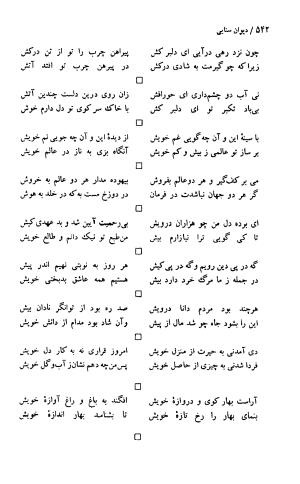 ۵۴۲ / دیوان سنایی
چون نزد رهی درآیی ای دلبر کش پیراهن چرب را تو از تن درکش
زیرا که چو گیرمت به شادی درکش در پیرهن چرب تو افتد آتش
نی آب دو چشم‌داری ای حورافش زان روی درین دلست چندین آتش
بی‌باد تکبر تو ای دلبر کش با خاک سر کوی تو دل دارم خوش
با سینهٔ این و آن چه گویی غم خویش از دیدهٔ این و آن چه جویی نم خویش
بر ساز تو عالمی ز بیش و کم خویش آنگاه بزی به ناز در عالم خویش
می بر کف‌گیر و هر دو عالم بفروش بیهوده مدار هر دو عالم به خروش
گر هر دو جهان نباشدت در فرمان در دوزخ مست به که در خلد به هوش
ای برده دل من چو هزاران درویش بی‌رحمیت آیین شد و بد عهدی کیش
تا کی گویی ترا نیازارم بیش من طبع تو نیک دانم و طالع خویش
گه در پی دین رویم و گه در پی کیش هر روز به نوبتی نهیم اندر پیش
در جمله ز ما مرگ خرد دارد بیش هستیم همه عاشق بدبختی خویش
هرچند بود مردم دانا درویش صد ره بود از توانگر نادان بیش
این را بشود جاه چو شد مال از پیش وآن شاد بود مدام از دانش خویش
دی آمدنی به حیرت از منزل خویش امروز قراری نه به کار دل خویش
فردا شدنی به چیزی از حاصل خویش پس من چه دهم نشان ز آب و گل خویش
آراست بهار کوی و دروازهٔ خویش افگند به باغ و راغ آوازهٔ خویش
بنمای بهار را رخ تازهٔ خویش تا بشناسد بهار اندازهٔ خویش